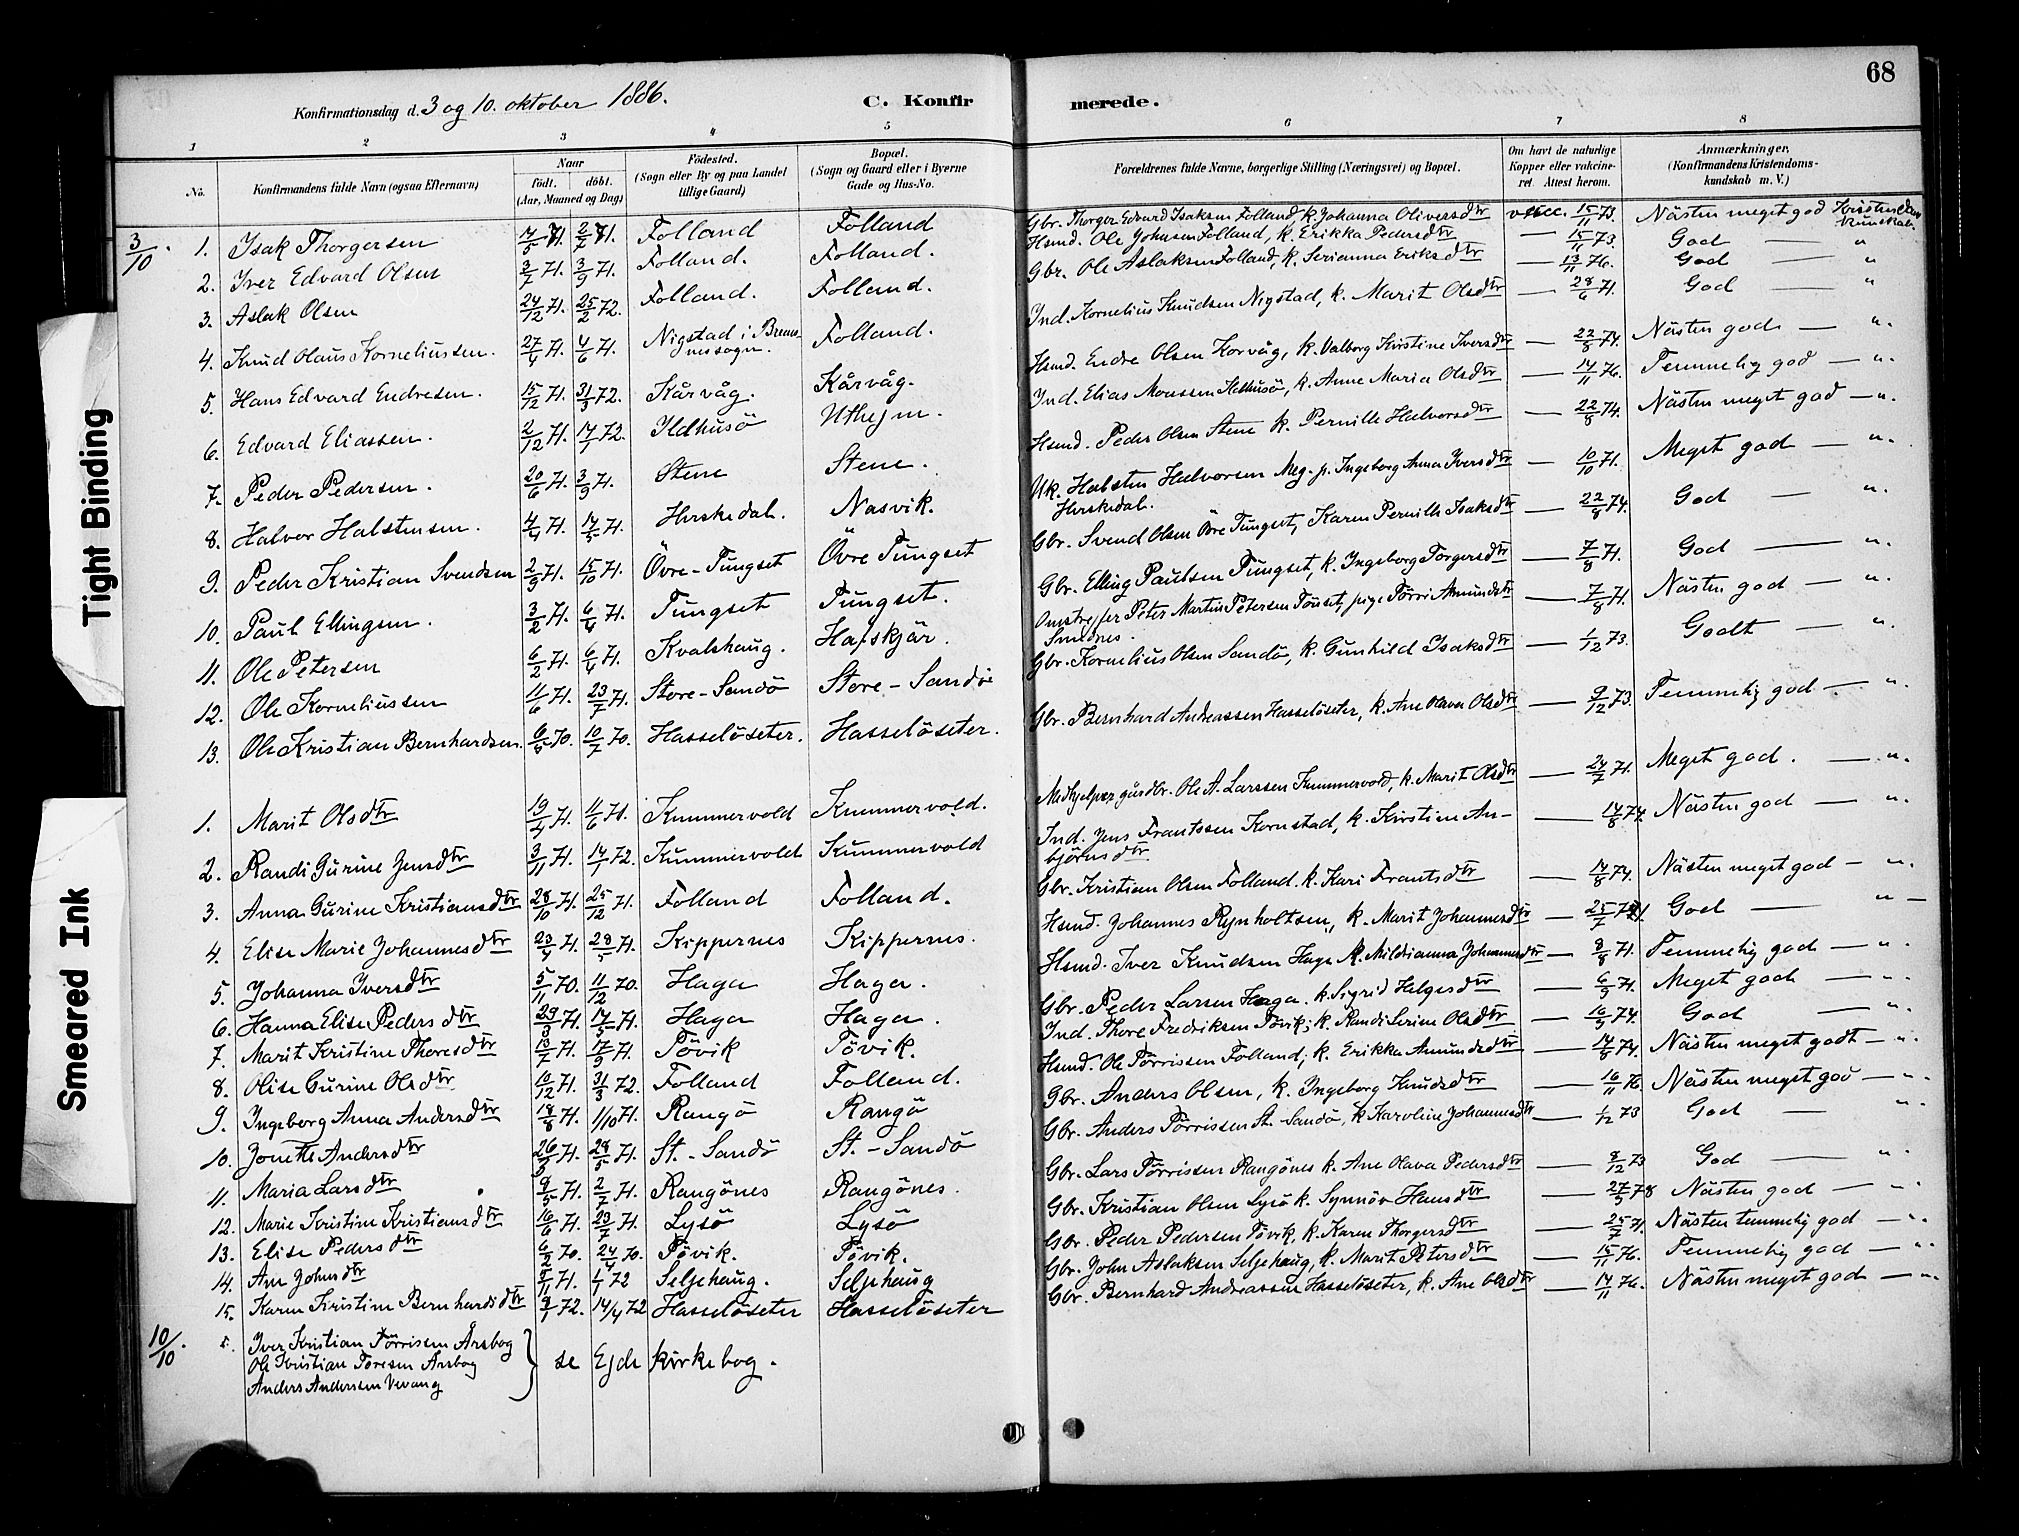 68
Konfirmationsdag d. 3 og 10. oktober 1886.
C. Konfirmerede.
1 2 3 4 5 6 7 8
No.
Konfirmandens fulde Navn (ogsaa Efternavn)
Naar
født. døbt.
(Aar, Maaned og Dag)
Födested.
(Sogn eller By og paa Landet tillige Gaard)
Bopæl.
(Sogn og Gaard eller i Byerne Gade og Hus-No.
Forældrenes fulde Navne, borgerlige Stilling (Næringsvei) og Bopæl.
Om havt de naturlige Kopper eller vakcineret. Attest herom.
Anmærkninger.
(Konfirmandens Kristendomskundskab m. V.)
3/10. 1. Isak Thorgersen 71. 2/7 71. Folland Folland Gbr. Thorger Edvard Isaksen Folland, k. Johanna Oliversdtr vacc. 15/11 73. Nästen meget god Kristendoms Kunskab.
2. Iver Edvard Olsen 3/7 71. 3/9 71. Folland. Folland. Hsmd. Ole Johnsen Folland, k. Erikka Pedersdtr — 15/11 73. God — "
3. Aslak Olsen 24/12 71. 25/2 72. Folland. Folland. Gbr. Ole Aslaksen Folland, k. Serianna Eriksdtr — 13/11 76. God — "
4. Knud Olaus Korneliussen. 27/4 71. 4/6 71. Nigstad i Bremsnes sogn. Folland. Ind. Kornelius Knudsen Nigstad, k. Marit Olsdtr — 28/6 71. God — "
5. Hans Edvard Endresen. 15/12 71. 31/3 72. Kårvåg. Kårvåg. Hsmd. Endre Olsen Korvåg, k. Valborg Kirstine Iversdtr — 22/8 74. Nästen god — "
6. Edvard Eliassen. 2/12 71. 14/1 72. Ildhusö Uthejm. Ind. Elias Monssen Ildhusö, k. Anne Maria Olsdtr — 14/11 76. Temmelig god — "
7. Peder Pedersen. 20/6 71. 3/9 71. Stene Stene. Hsmd. Peder Olsen Stene k. Pernille Halvorsdtr — 22/8 74. Nästen meget god — "
8. Halvor Halstensen. 4/4 71. 14/5 71. Herskedal. Nasvik. Uk. Halsten Halvorsen Meg. p. Ingeborg Anna Iversdtr Herskedal. — 10/10 71. Meget god — "
9. Peder Kristian Svendsen 2/9 71. 15/10 71. Övre-Tungset Övre Tungset Gbr. Svend Olsen Övre Tungset, Karen Pernille Isaksdtr — 22/8 74. God — "
10. Paul Ellingsen. 3/2 71. 6/4 71. Tungset Tungset. Gbr. Elling Paulsen Tungset, k. Ingeborg Torgersdtr — 7/8 71. God — "
11. Ole Petersen 6/2 71. 6/4 71. Kvalshaug. Hafskjär. Peter Martin Petersen pige Törri Amundsdtr — 7/8 71. Nästen god — "
12. Ole Korneliussen 11/6 71. 23/7 71. Store-Sandö Store-Sandö Gbr. Kornelius Olsen Sandö, k. Gunhild Isaksdtr — 1/12 73. Godt — "
13. Ole Kristian Bernhardsen. 70. 10/7 70. Hasselöseter. Hasselöseter. Gbr. Bernhard Andreassen Hasselöseter, k. Ane Olava Olsdtr — 9/12 73. Temmelig god — "
1. Marit Olsdtr 19/4 71. 11/6 71. Kummervold Kummervold. Medhjelper gårdbr. Ole A. Larssen Kummervold, k. Marit Olsdtr — 24/7 71. Meget god. — "
2. Randi Gurine Jensdtr 3/11 71. 14/1 72. Kummervold Kummervold Ind. Jens Frantssen Kornstad, k. Kirstine Anbjörnsdtr — 14/8 74. Nästen god — "
3. Anna Gurine Kristiansdtr 28/10 71. 25/12 71. Folland Folland. Gbr. Kristian Olsen Folland. k. Kari Frantsdtr — 14/8 74. Nästen meget god — "
4. Elise Marie Johannesdtr 23/4 71. 28/5 71. Kippernes Kippernes. Hsmd. Johannes Rynholtsen, k. Marit Johannesdtr — 25/7 71 God — "
5. Johanna Iversdtr 5/11 70. 11/12 70. Haga Haga. Hsmd. Iver Knudsen Haga k. Mildrianna Johannesdtr — 8/8 71. Temmelig god — "
6. Hanna Elise Pedersdtr 29/3 71. 14/5 71. Haga Haga. Gbr. Peder Larsen Haga. k. Sigrid Helgesdtr — 6/9 71. Meget god — "
7. Marit Kristine Thoresdtr 13/7 71. 17/9 71. Tövik Tövik. Ind. Thore Fredriksen Tövik, k. Randi Serine Olsdtr — 74. God — "
8. Olise Gurine Olsdtr 10/12 71. 31/3 72. Folland Folland. Hsmd. Ole Törrissen Folland, k. Erikka Amundsdtr — 14/8 74. Nästen meget godt — "
9. Ingeborg Anna Andersdtr 18/8 71. 1/10 71. Rangö Rangö Gbr. Anders Olsen, k. Ingeborg Knudsdtr — 16/11 76. Nästen meget god — "
10. Jonette Andersdtr 26/3 71. 28/5 71. St.-Sandö St.-Sandö Gbr. Anders Törrissen St.-Sandö, k Karoline Johannesdtr — 1/12 73 God — "
11. Maria Larsdtr 9/5 71. 2/7 71. Rangönes Rangönes. Gbr. Lars Törrissen Rangönes k. Ane Olava Pedersdtr — 8/12 73 God — "
12. Marie Kristine Kristiansdtr 16/6 71. 23/7 71. Lysö Lysö Gbr. Kristian Olsen Lysö k. Synnöv Hansdtr — 27/9 78 Nästen god — "
13. Elise Pedersdtr 6/2 70. 24/4 70. Tövik. Tövik. Gbr. Peder Pedersen Tövik, k. Karen Thorgersdtr — 25/7 71. Nästen temmelig god — "
14. Ane Johnsdtr 5/11 71. 1/1 72 Seljehaug. Seljehaug Gbr. John Aslaksen Seljehaug, k. Marit Petersdtr — 15/11 76. Temmelig god — "
15. Karen Kristine Bernhardsdtr 9/1 72. 14/4 72 Hasselöseter Hasselöseter Gbr. Bernhard Andreassen Hasselöseter, k. Ane Olsdtr — 14/11 76. Nästen meget god — "
10/10. Iver Kristian Törrissen Årsbog
Ole Kristian Toresen Årsbog } se Ejde kirkebog.
Anders Andersen Vevang
Tight Binding
Smeared Ink